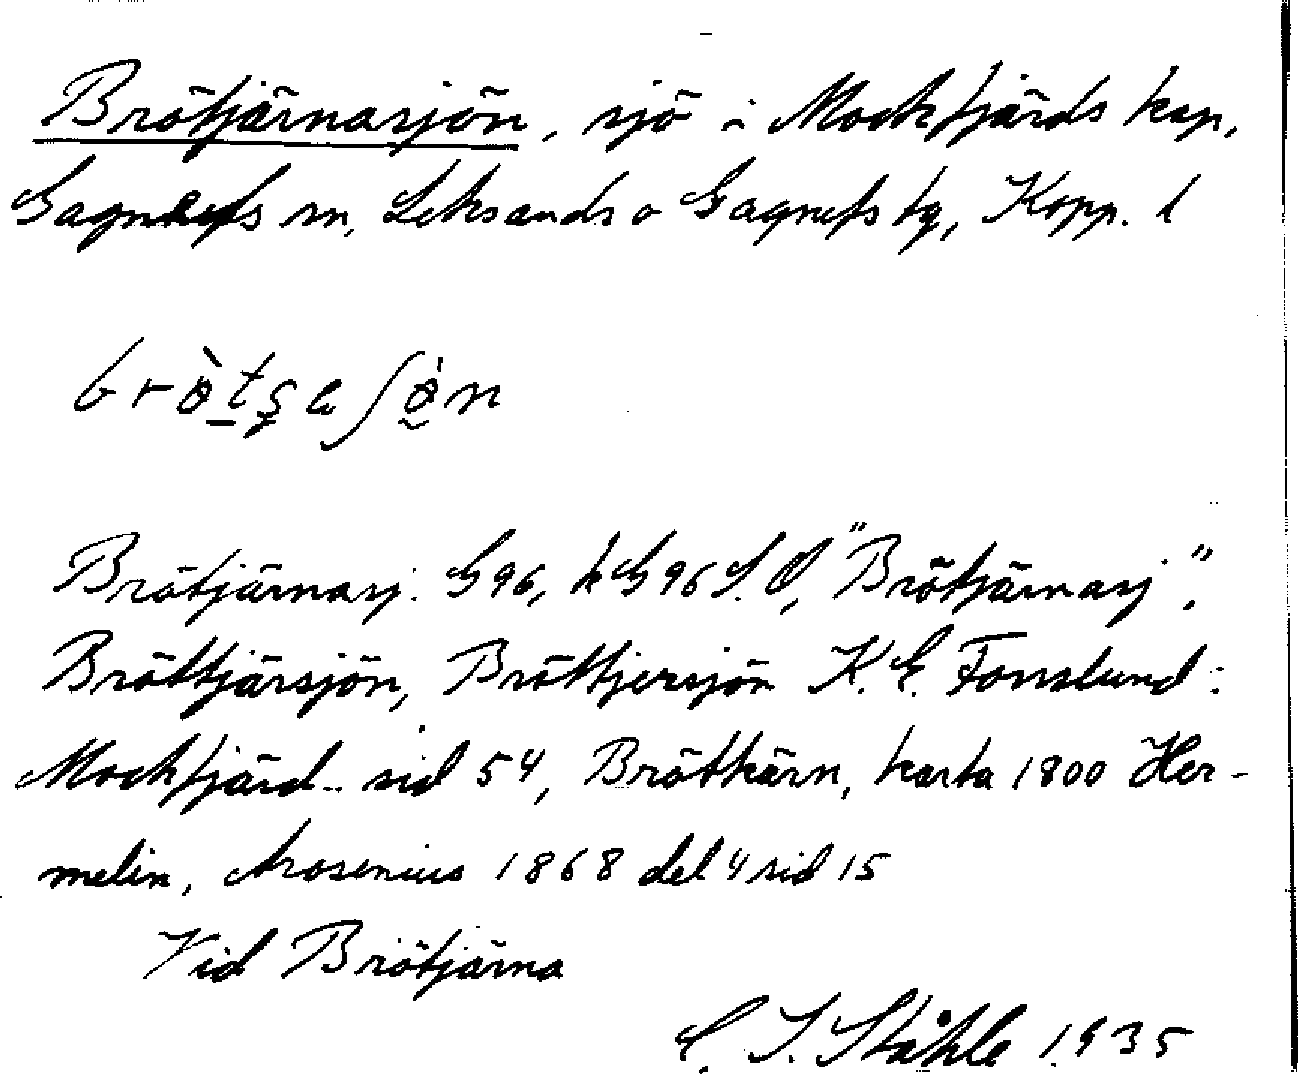 Brötjärnasjön, sjö i Mockfjärds kap,
Gagnefs sn, Leksands o Gagnefs tg, Kopp. l
Brötjärnasj. G96, kG96 S.O, "Brötjärnasj",
Bröttjärsjön, Bröttjersjön K.E. Forsslund:
Mockfjärd.. sid 54, Brötkärn, karta 1800 Her-
melin, Arosenius 1868 del 4 sid 15
Vid Brötjärna
C. I. Ståhle 1935